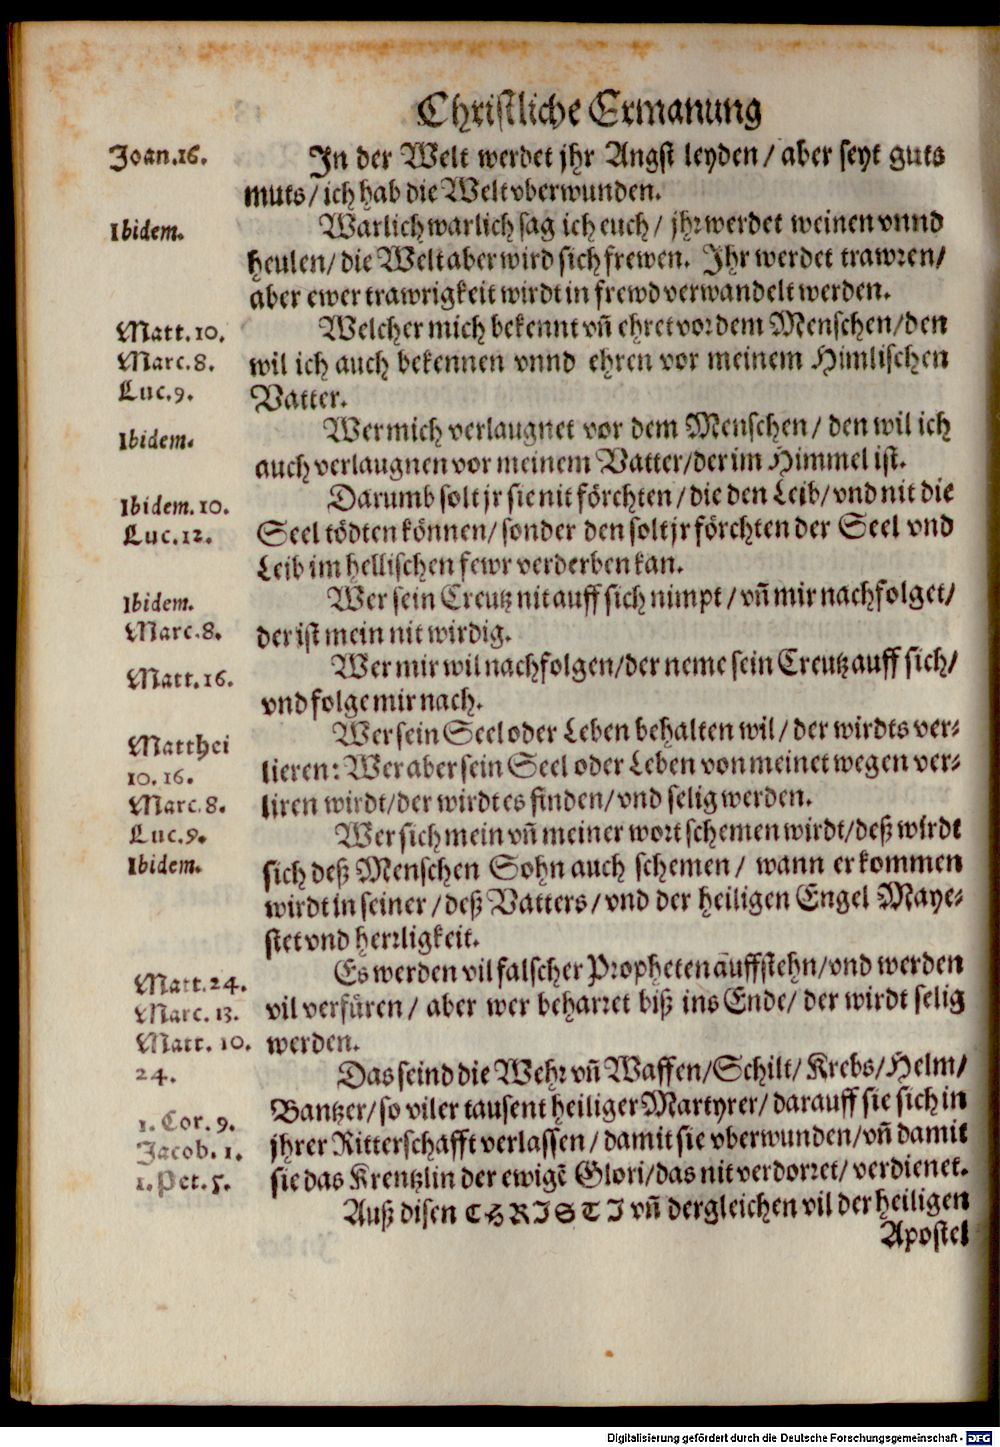 Christliche Ermanung
Joan.16.
In der Welt werdet jhr Angst leyden / aber seyt guts
muts / ich hab die Welt vberwunden.
Ibidem.
Warlich warlich sag ich euch / jhr werdet weinen vnnd
heulen / die Welt aber wird sich frewen. Ihr werdet trawren /
aber ewer trawrigkeit wirdt in frewd verwandelt werden.
Matt.10.
Marc.8.
Luc.9.
Welcher mich bekennt vñ ehret vor dem Menschen / den
wil ich auch bekennen vnnd ehren vor meinem Himlischen
Vatter.
Ibidem.
Wer mich verlaugnet vor dem Menschen / den wil ich
auch verlaugnen vor meinem Vatter / der im Himmel ist.
Ibidem.10.
Luc.12.
Darumb solt jr sie nit förchten / die den Leib / vnd nit die
Seel tödten können / sonder den solt jr förchten der Seel vnd
Leib im hellischen fewr verderben kan.
Ibidem.
Marc.8.
Wer sein Creutz nit auff sich nimpt / vñ mir nachfolget /
der ist mein nit wirdig.
Matt.16.
Wer mir wil nachfolgen / der neme sein Creutz auff sich /
vnd folge mir nach.
Matthei
10.16.
Marc.8.
Luc.9.
Wer sein Seel oder Leben behalten wil / der wirdts ver-
lieren: Wer aber sein Seel oder Leben von meinet wegen ver-
liren wirdt / der wirdt es finden / vnd selig werden.
Ibidem.
Wer sich mein vñ meiner wort schemen wirdt / deß wirdt
sich deß Menschen Sohn auch schemen / wann er kommen
wirdt in seiner / deß Vatters / vnd der heiligen Engel Maye-
stet vnd herrligkeit.
Matt.24.
Marc.13.
Matt.10.
24.
Es werden vil falscher Propheten auffstehn / vnd werden
vil verfüren / aber wer beharret biß ins Ende / der wirdt selig
werden.
1.Cor.9.
Jacob.1.
1.Pet.5.
Das seind die Wehr vñ Waffen / Schilt / Krebs / Helm /
Bantzer / so viler tausent heiliger Martyrer / darauff sie sich in
jhrer Ritterschafft verlassen / damit sie vberwunden / vñ damit
sie das Krentzlin der ewigē Glori / das nit verdorret / verdienet.
Auß disen CHRISTI vñ dergleichen vil der heiligen
Apostel
Digitalisierung gefördert durch die Deutsche Forschungsgemeinschaft - DFG